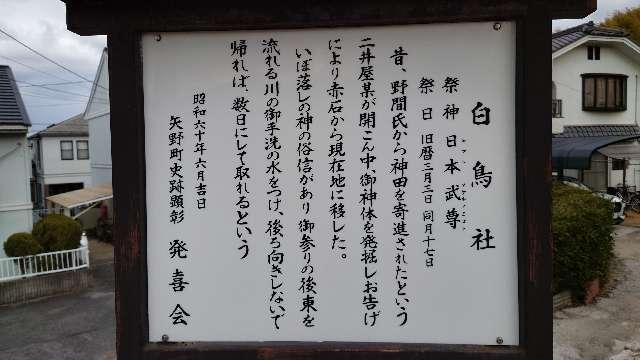 白鳥社
祭神 日本武尊
ヤマト タケルノミコト
祭日 旧暦三月三日 同月十七日
昔、野間氏から神田を寄進されたという
二井屋某が開こん中、御神体を発掘しお告げ
により赤石から現在地に移した。
いぼ落しの神の俗信があり御参りの後東を
流れる川の御手洗の水をつけ、後ろ向きしないで
帰れば、数日にして取れるという
昭和六十年六月吉日
矢野町史跡顕彰 発喜会